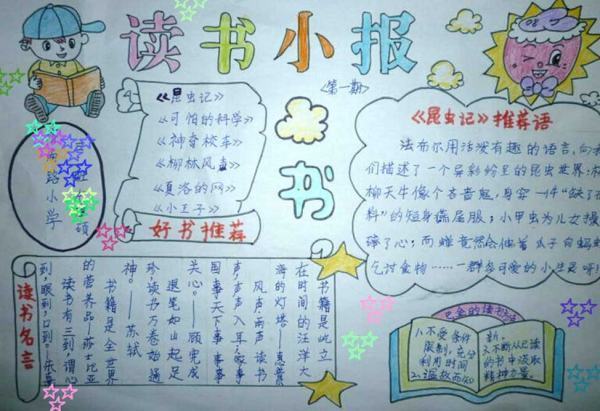 读书小报
<第一期>
《昆虫记》
《可怕的科学》
《神奇校车》
《柳林风声》
《夏洛的网》
《小王子》
好书推荐
书
《昆虫记》推荐语
法布尔用活泼有趣的语言,向我
们描述了一个异彩纷呈的昆虫世界:
柳天牛像个吝啬鬼,身穿一件"缺了
料"的短身燕尾服;小甲虫为儿女操
碎了心;而
乞讨食物……一群多可爱的小生灵呀!
路小学
读书名言
书籍是屹立
在时间的汪洋大
海的灯塔——惠普尔
风声雨声读书
声声声入耳,家事
国事天下事事事
关心。——顾宪成
退笔如山起足
珍,读书万卷始通
神。——苏轼
书籍是全世界
的营养品——莎士比亚
读书有三到,谓心
到,眼到,口到——朱熹
的读书方法
1.不受条件
限制,充分
利用时间
2.温故而知
新。
3.不断从已读
的书中汲取
精神力量。